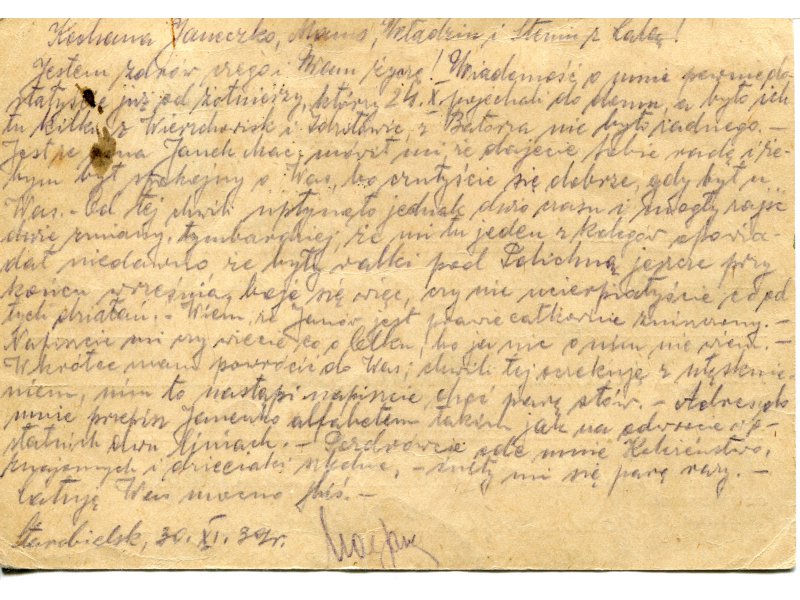 Kochana Janeczko, Mamo, Władziu i Steniu z Całą!
Jestem zdrów czego i Wam życzę! Wiadomość o mnie pewnie do-
stałyście już od żołnierzy, którzy 24.X. pojechali do domu, a było ich
tu kilku z Wierzchowisk i Zdziłowic, z Batorza nie było żadnego. –
Jest ze mną Janek Mac, mówił mi że dajecie sobie radę i że-
bym był spokojny o Was, bo czułyście się dobrze, gdy był u
Was. – Od tej chwili upłynęło jednak dużo czasu i mogły zajść
duże zmiany, tymbardziej, że mi tu jeden z kolegów opowia-
dał niedawno że były walki pod Polichną jeszcze przy
końcu września, boję się więc, czy nie ucierpiałyście co od
tych działań. – Wiem, że Janów jest prawie całkowicie zniszczony. –
Napiszcie mi czy wiecie co o bo ja nic o nim nie wiem. –
Wkrótce mam powrócić do Was; chwili tej oczekuję z utęsknie-
niem, nim to nastąpi napiszcie choć parę słów. – Adres do
mnie przepisz Janeczko alfabetem takich jak na odwrocie w o-
statnich dwu linijkach. – Pozdrówcie ode mnie
znajomych i dzieciaki – śniły mi się parę razy. –
Całuję Was mocno –
Starobielsk, 30.XI.39r.